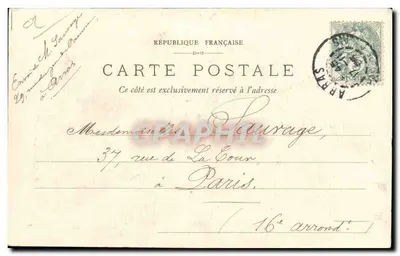 RÉPUBLIQUE FRANÇAISE
CARTE POSTALE
Ce côté est exclusivement réservé à l'adresse
ARRAS
à Arras
Mesdemoiselles Sauvage,
37, rue de La Tour,
à Paris.
(16e arrondt)
CPAPHIL